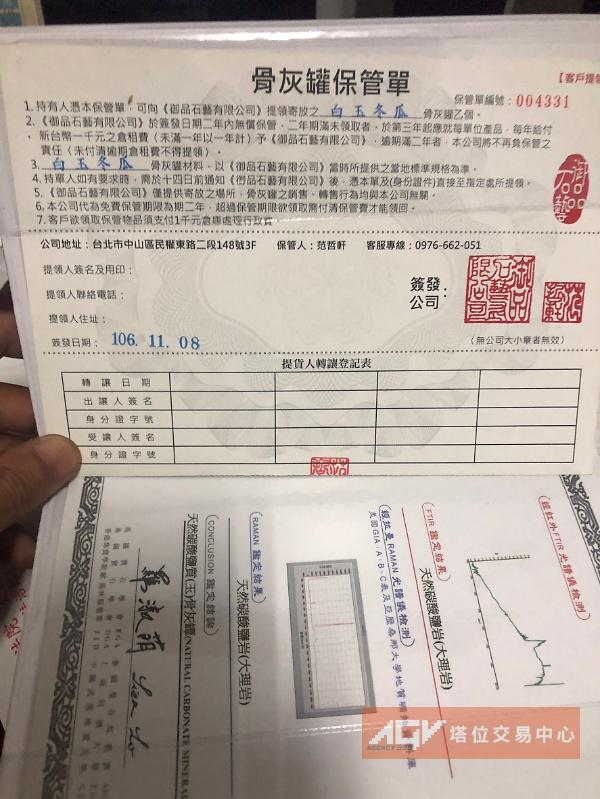 骨灰罐保管單
【客戶提領
保管單編號：004331
1. 持有人憑本保管單，可向《御品石藝有限公司》提領寄放之 白玉冬瓜 骨灰罐乙個。
2. 《御品石藝有限公司》於簽發日期二年內無償保管，二年期滿未領取者，於第三年起應就每單位產品，每年給付
新台幣一千元之倉租費（未滿一年以一年計）予《御品石藝有限公司》，逾期滿二年者，本公司將不再負保管之
責任（未付清逾期倉租費不得提領）。
3. 白玉冬瓜 骨灰罐材料，以《御品石藝有限公司》當時所提供之當地標準規格為準。
4. 持單人如有要求時，需於十四日前通知《御品石藝有限公司》後，憑本單及(身份證件)直接至指定處所提領。
5. 《御品石藝有限公司》僅提供寄放之場所，骨灰罐之銷售，轉售行為均與本公司無關。
6. 本公司代為免費保管期限為期二年，超過保管期限欲領取需付清保管費才能領回。
7. 客戶欲領取保管物品須支付1千元倉庫處理行政費
御品石藝
公司地址：台北市中山區民權東路二段148號3F 保管人：范哲軒 客服專線：0976-662-051
提領人簽名及用印：
提領人聯絡電話：
提領人住址：
簽發公司：
簽發日期：106.11.08
（無公司大小章者無效）
提貨人轉讓登記表
轉讓日期
出讓人簽名
身分證字號
受讓人簽名
身分證字號
經紅外FTIR光譜儀檢測
FTIR 鑑定結果
天然碳酸鹽岩(大理岩)
經拉曼RAMAN光譜儀檢測
RAMAN 鑑定結果
天然碳酸鹽岩(大理岩)
CONCLUSION 鑑定結論
天然碳酸鹽質(玉)骨灰罐/NATURAL CARBONATE MINERAL
羅淑萌 Lisa Lo
AGV
AGENCY 333
塔位交易中心